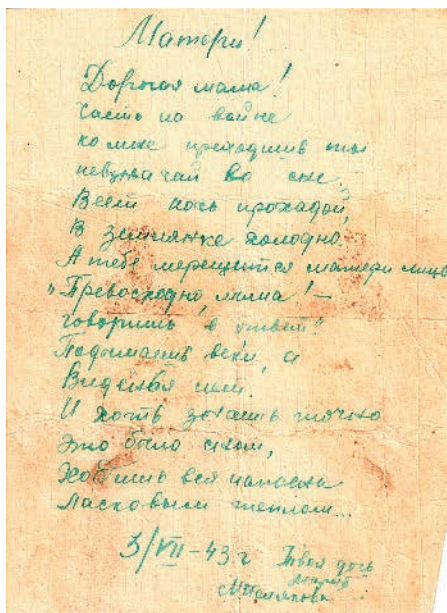 Матери!
Дорогая мама!
Часто на войне
ко мне приходишь ты
невзначай во сне.
Веет ночь прохладой,
В землянке холодно,
А тебе мерещится матери лицо
"Превосходно, мама! –
говоришь в ответ."
Подымаешь веки, а
Виденья нет.
И хоть знаешь точно
Это было сном,
Ходишь вся
Ласковым теплом...
3/VII-43 г Твоя дочь
Мария